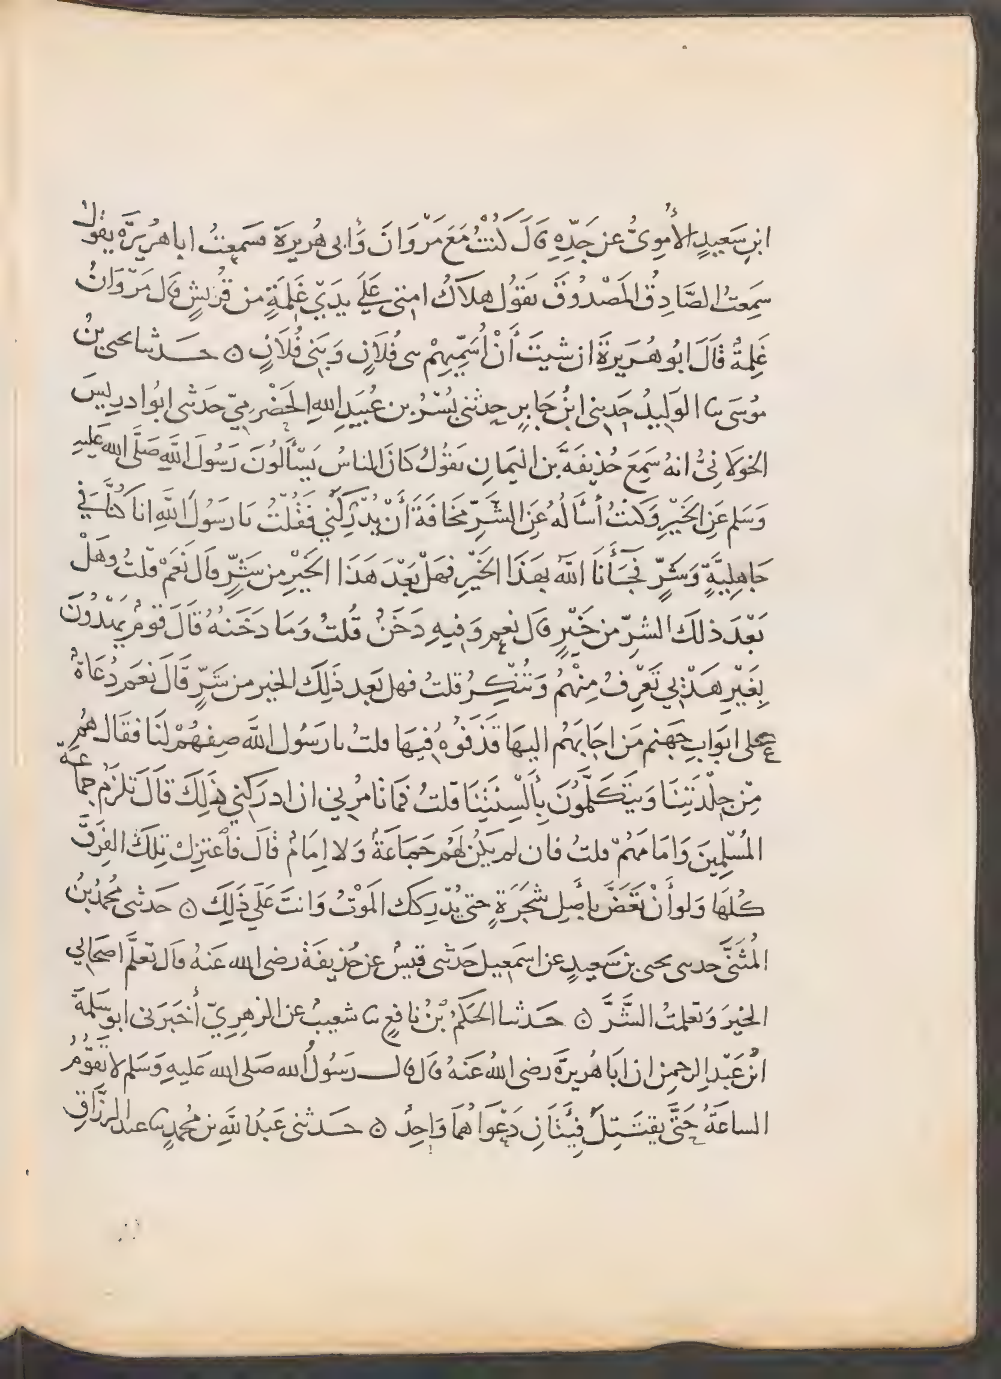 ابنِ سَعيدٍ الأُمويُّ عن جَدِّهِ قالَ كُنْتُ مَعَ مَرْوَانَ وَأبى هُرَيرَةَ فسَمِعتُ اباهُرَيرَةَ يقولُ
سَمِعتُ الصَّادِقَ المَصْدُوقَ يَقوُلُ هلاَكُ امتى عَلَي يَدَيْ غِلمَةٍ من قُرَيشٍ قال مَرْوَانُ
غِلمةٌ قالَ ابُو هُرَيرةَ ان شيتَ أَنْ أُسَمِّيَهُمْ بنى فُلاَنٍ وَبَنى فُلاَنٍ ۞ حَدثنا يحيى بنُ
مُوسَى نا الوَليدُ حَدثني ابنُ جَابرٍ حدثنى بُسْرُ بن عُبَيدِ اللهِ الحَضْرَميّ حَدثنى ابُوا دريسَ
الخولاَنيُّ انهُ سَمِعَ حُذيفةَ بن اليَمانِ يَقوُلُ كانَ الناسُ يَسْأَلُونَ رَسُولَ اللَّهِ صَلَّى اللهُ عَليهِ
وَسَلم عَنِ الخَيْرِ وَكنتُ أَسْألُهُ عَنِ الشَّرِّ مَخافَةَ أَنْ يُدْرِكَنِي فَقُلْتُ يا رَسُولَ اللَّهِ انا كُنَّا في
جَاهِليَّةٍ وَشَرٍّ فَجَاءَنَا اللّهُ بهَذَا الخَيْرِ فهَلْ بَعْدَ هَذَا الخَيْرِ من شَرٍّ قالَ نَعَمْ قلتُ وهَلْ
بَعْدَ ذلكَ الشَّرِّ من خَيْرٍ قال نعم وَفيهِ دَخَنٌ قُلتُ وَمَا دَخَنُهُ قَالَ قومٌ يَهْدُونَ
بِغَيْرِ هَدْيي تَعْرِفُ مِنْهُمْ وَتُنْكِرُ قلتُ فهل بَعد ذَلِكَ الخير من شَرٍّ قَالَ نعَم دُعَاةٌ
على ابْوَابِ جَهنم مَن اجَابَهُم اليهَا قَذَفُوهُ فِيهَا قلتُ يا رَسُولَ اللَّهِ صِفهُمْ لنَا فقَال هُم
مِّن جِلْدَتِنَا وَيَتَكَلَّمُونَ بِأَلسِنَتِنَا قلتُ فمَا تَامُرُنِي ان ادرَكَنِي ذَلِكَ قَالَ تَلزَمُ جمَاعَةَ
المُسْلِمِينَ وَامَامَهُمْ قلتُ فان لم يَكنْ لهُم جَمَاعَةٌ وَلا اِمَامٌ قالَ فاعتزِلْ تِلكَ الفِرَقَ
كُلَّهَا وَلَو أَنْ تَعَضَّ بِاصْلِ شَجَرَةٍ حتى يُدْرِكَكَ المَوْتُ وَانتَ عَلَي ذَلِكَ ۞ حَدثنى مُحمدُ بنُ
المُثَنَّى حدثنى يحيى بن سَعِيدٍ عن اسمَعِيلَ حَدثنى قيسٌ عن حُذيفةَ رضى الله عَنهُ قال تعلَّم اصحَابي
الخيْرَ وَتعلمتُ الشَّرَّ ۞ حَدثنا الحَكَمُ بْنُ نافعٍ نا شعيبٌ عن الزهريّ أَخبَرَنى ابوسَلمَةَ
ابْنُ عَبْدِ الرحمنِ ان ابَاهُرَيرَةَ رضى اللهُ عَنهُ قال قال رسُولُ اللهِ صَلى الله عَليهِ وَسَلم لا تَقُومُ
الساعَةُ حَتَّى يقتَتِلَ فِئَتَانِ دَعْوَاهُمَا وَاحِدٌ ۞ حَدثنى عَبدُ اللَّهِ بن مُحمدٍ نا عبدُ الرزَّاقِ